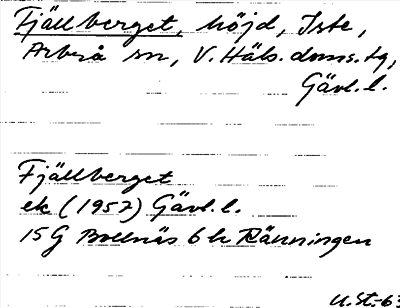 Fjällberget, höjd, Iste,
Arbrå sn, V. Häls. doms. tg,
Gävl. l.
Fjällberget
ek (1957) Gävl. l.
15G Bollnäs 6h Ränningen
U.St.-63